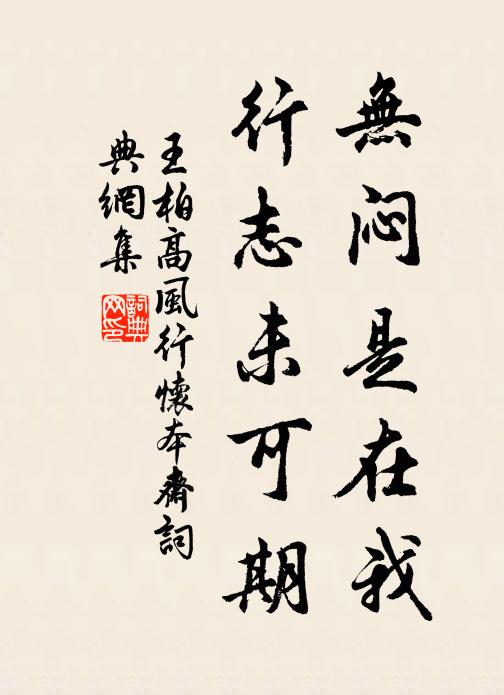 無悶是在我
行志未可期
王柏高風行懷本齋詞
典網集
詞典
网印